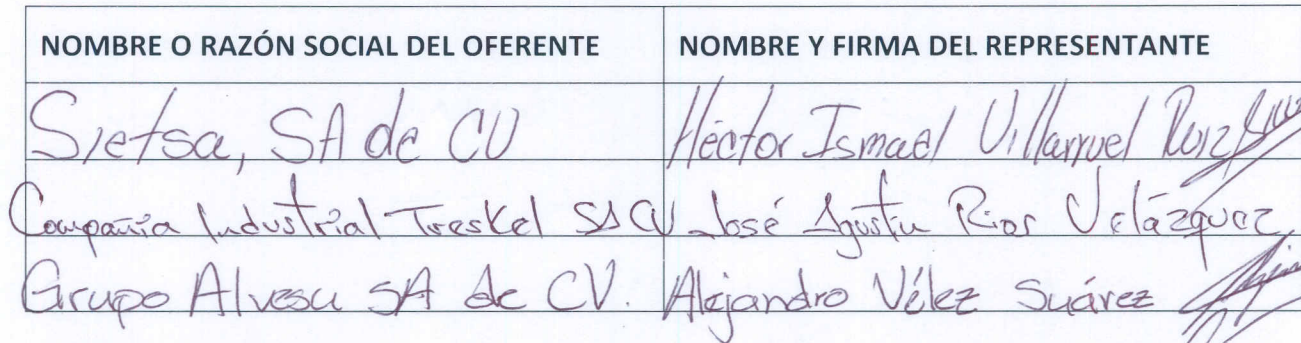 NOMBRE O RAZÓN SOCIAL DEL OFERENTE NOMBRE Y FIRMA DEL REPRESENTANTE
Sietsa, SA de CV Héctor Ismael Villarruel Ruiz
Compañía Industrial Treskel SA CV José Agustín Rios Velázquez
Grupo Alvesu SA de CV. Alejandro Vélez Suárez